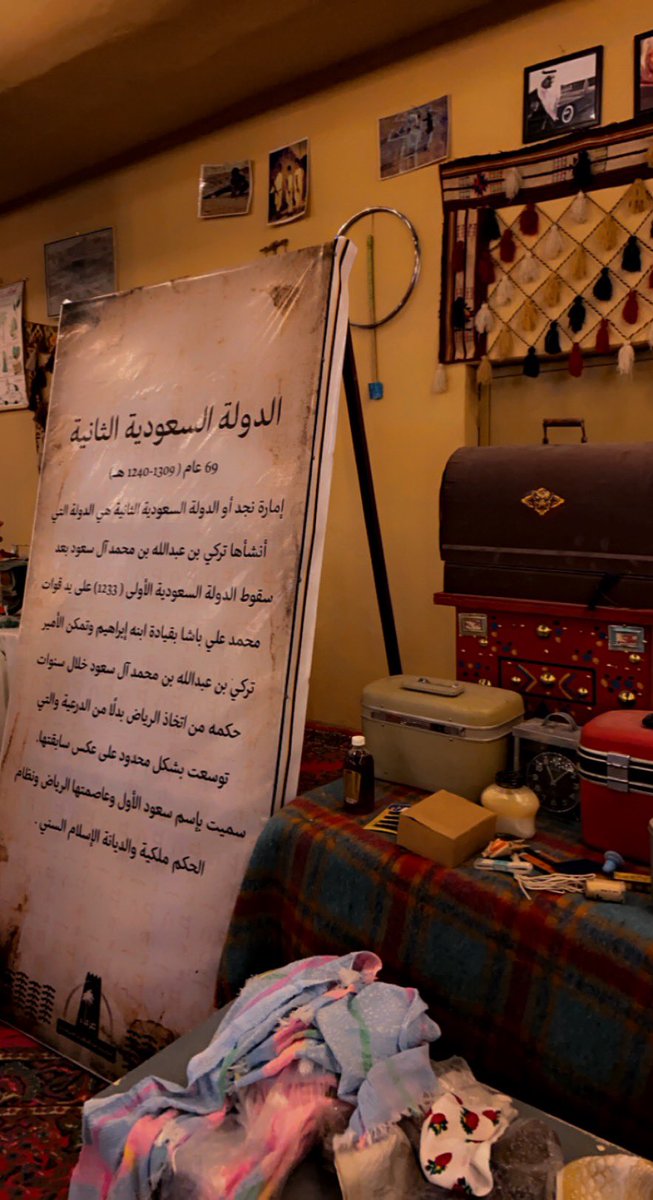 الدولة السعودية الثانية
69 عام ( 1309-1240 هـ)
إمارة نجد أو الدولة السعودية الثانية هي الدولة التي
أنشأها تركي بن عبدالله بن محمد آل سعود بعد
سقوط الدولة السعودية الأولى ( 1233) على يد قوات
محمد علي باشا بقيادة ابنه إبراهيم وتمكن الأمير
تركي بن عبدالله بن محمد آل سعود خلال سنوات
حكمه من اتخاذ الرياض بدلًا من الدرعية والتي
توسعت بشكل محدود على عكس سابقتها.
سميت بإسم سعود الأول وعاصمتها الرياض ونظام
الحكم ملكية والديانة الإسلام السني .